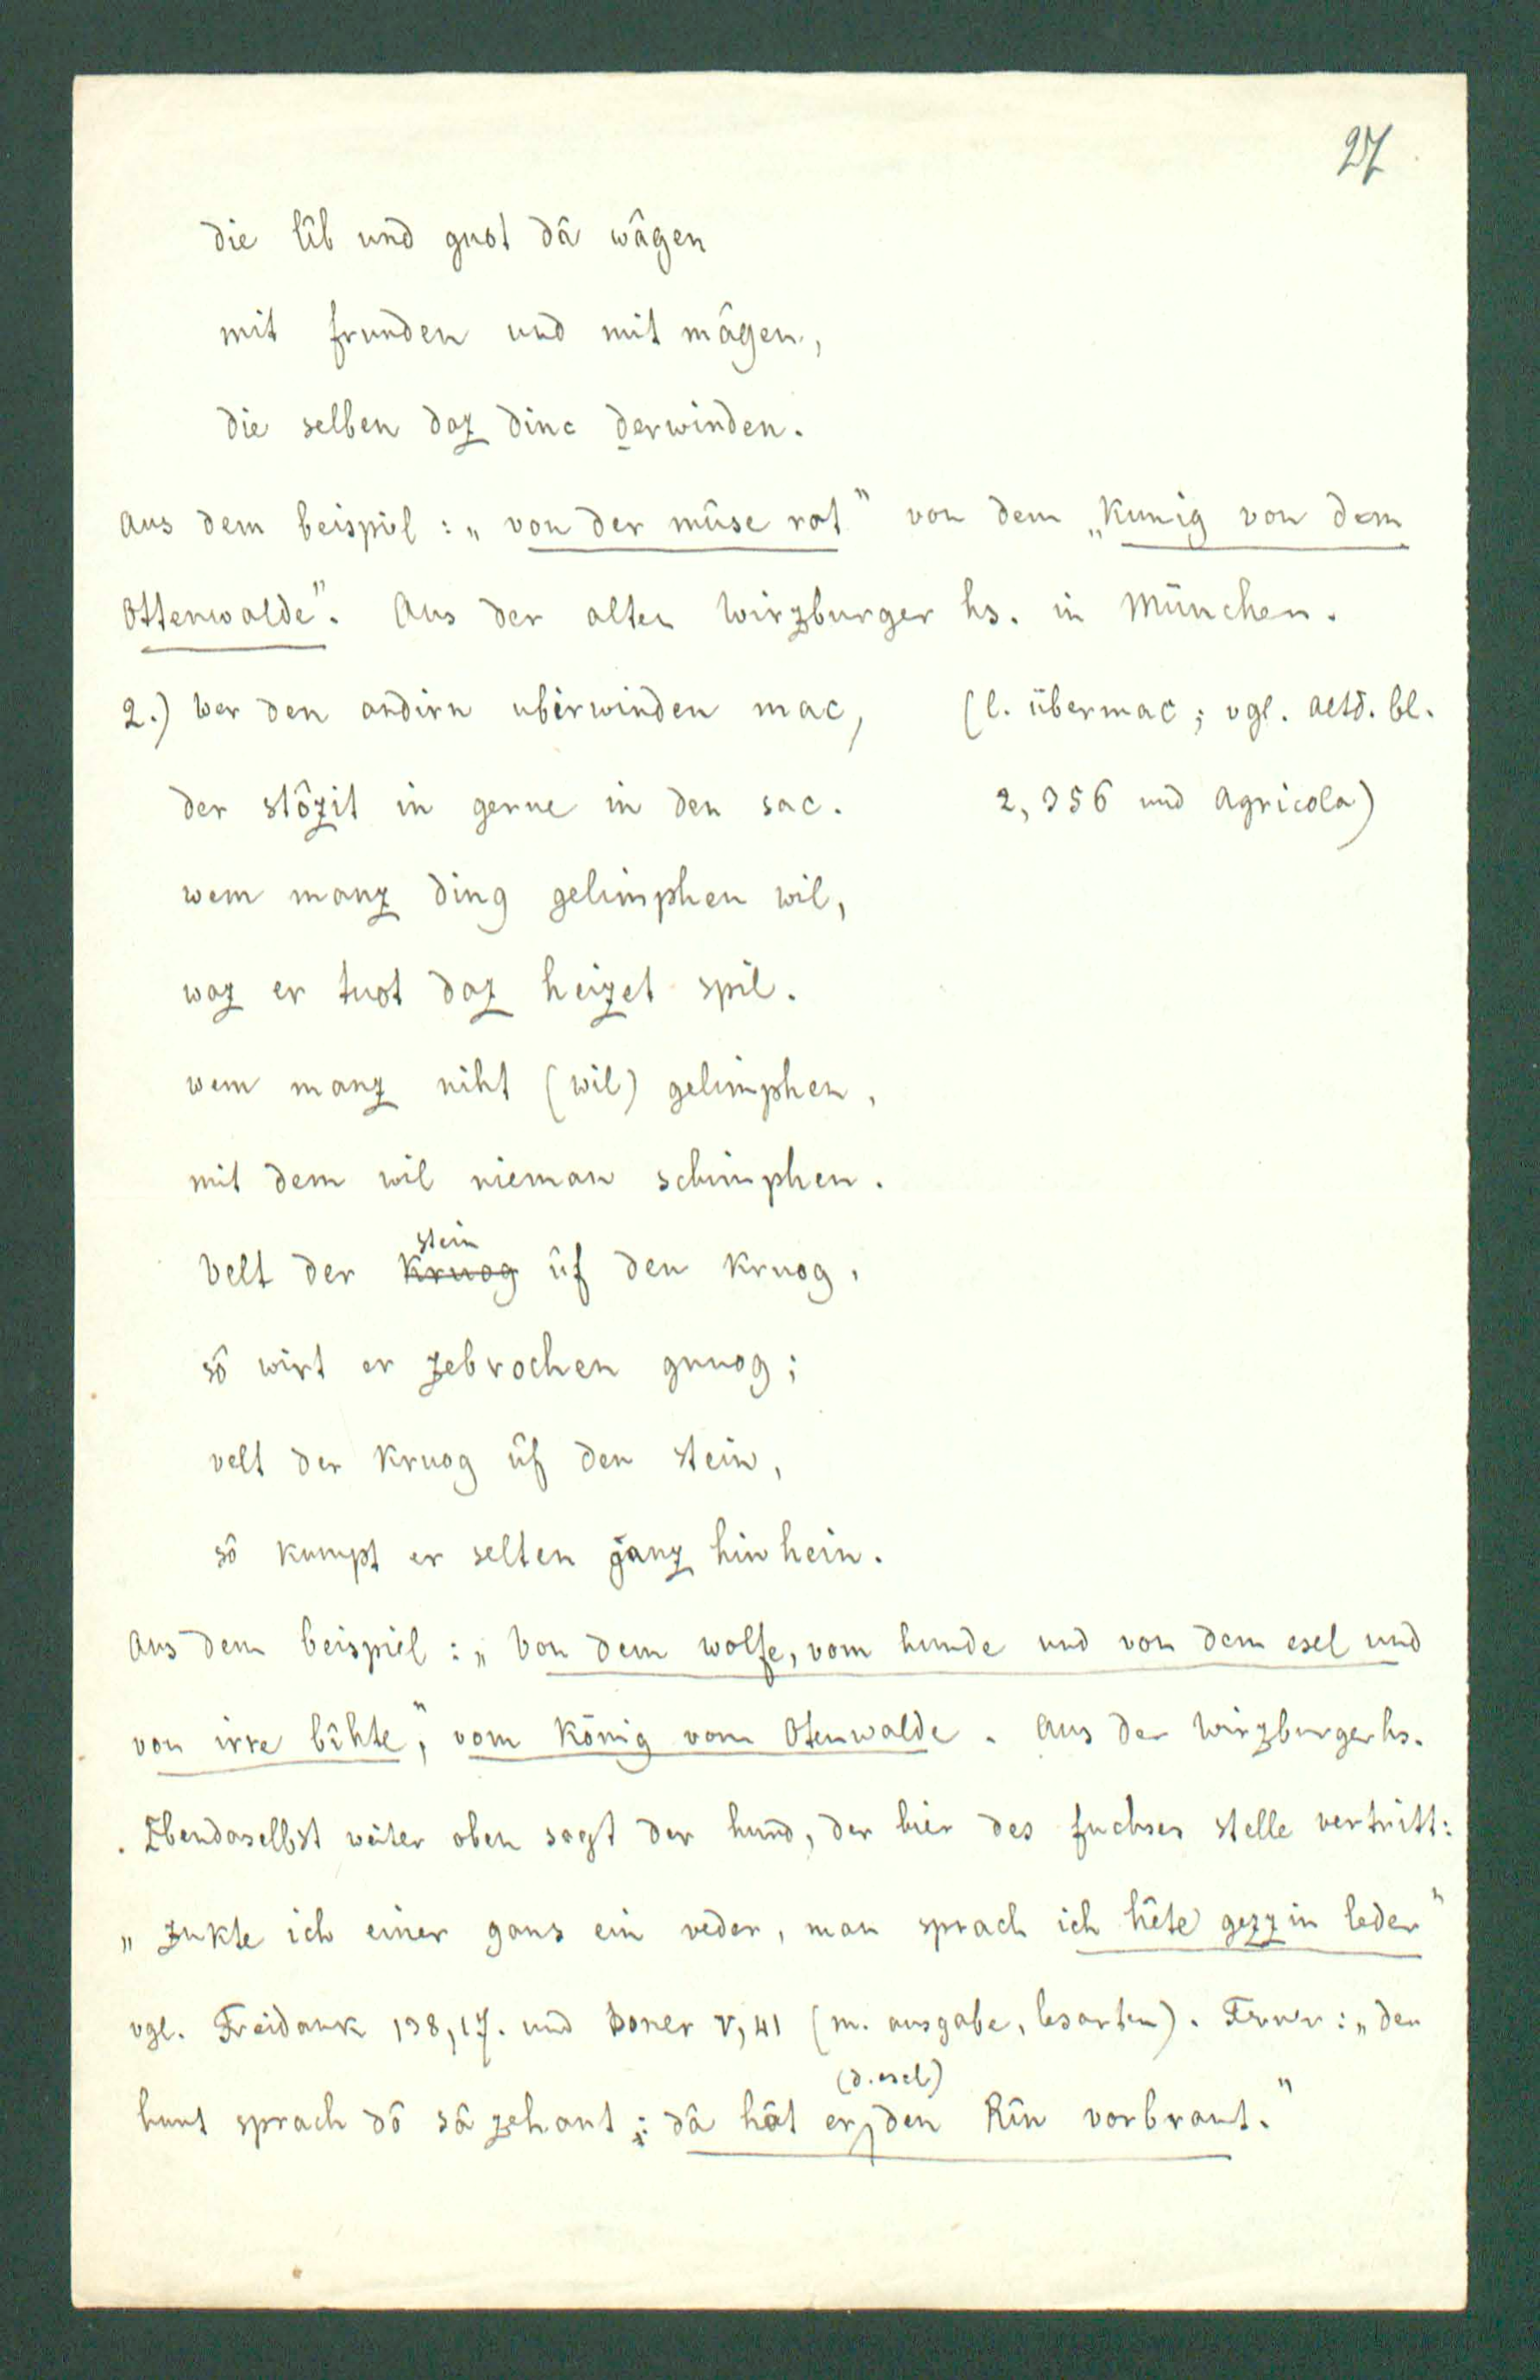 27
die lîb und guot dâ wâgen
mit frunden und mit mâgen,
die selben daz dinc derwinden.
Aus dem beispil: „von der mûse rat" von dem „Kunig von dem
Ottenwalde". Aus der alten Wirzburger hs. in München.
2.) Wer den andirn ubirwinden mac, (l. übermac; vgl. altd. bl.
der stôzit in gerne in den sac. 2, 356 und Agricola)
wem manz ding gelimphen wil,
waz er tuot daz heizet spil.
wem manz niht (wil) gelimphen,
mit dem wil nieman schimphen.
stein
Velt der kruog ûf den kruog,
sô wirt er zebrochen gnuog;
velt der kruog ûf den stein,
sô kumpt er selten ganz hin hein.
Aus dem beispiel: „Von dem wolfe, vom hunde und von dem esel und
von irre bîhte", vom König vom Otenwalde. Aus der Wirzburgerhs.
. Ebendaselbst weiter oben sagt der hund, der hier des fuchses stelle vertritt:
„zukte ich einer gans ein veder, man sprach ich hête gezzin leder"
vgl. Freidank 138,17. und Boner V, 41 (m. ausgabe, lesarten). Ferner: „der
(d. esel)
hunt sprach dô sâ zehant: dâ hât er den Rîn vorbrant."